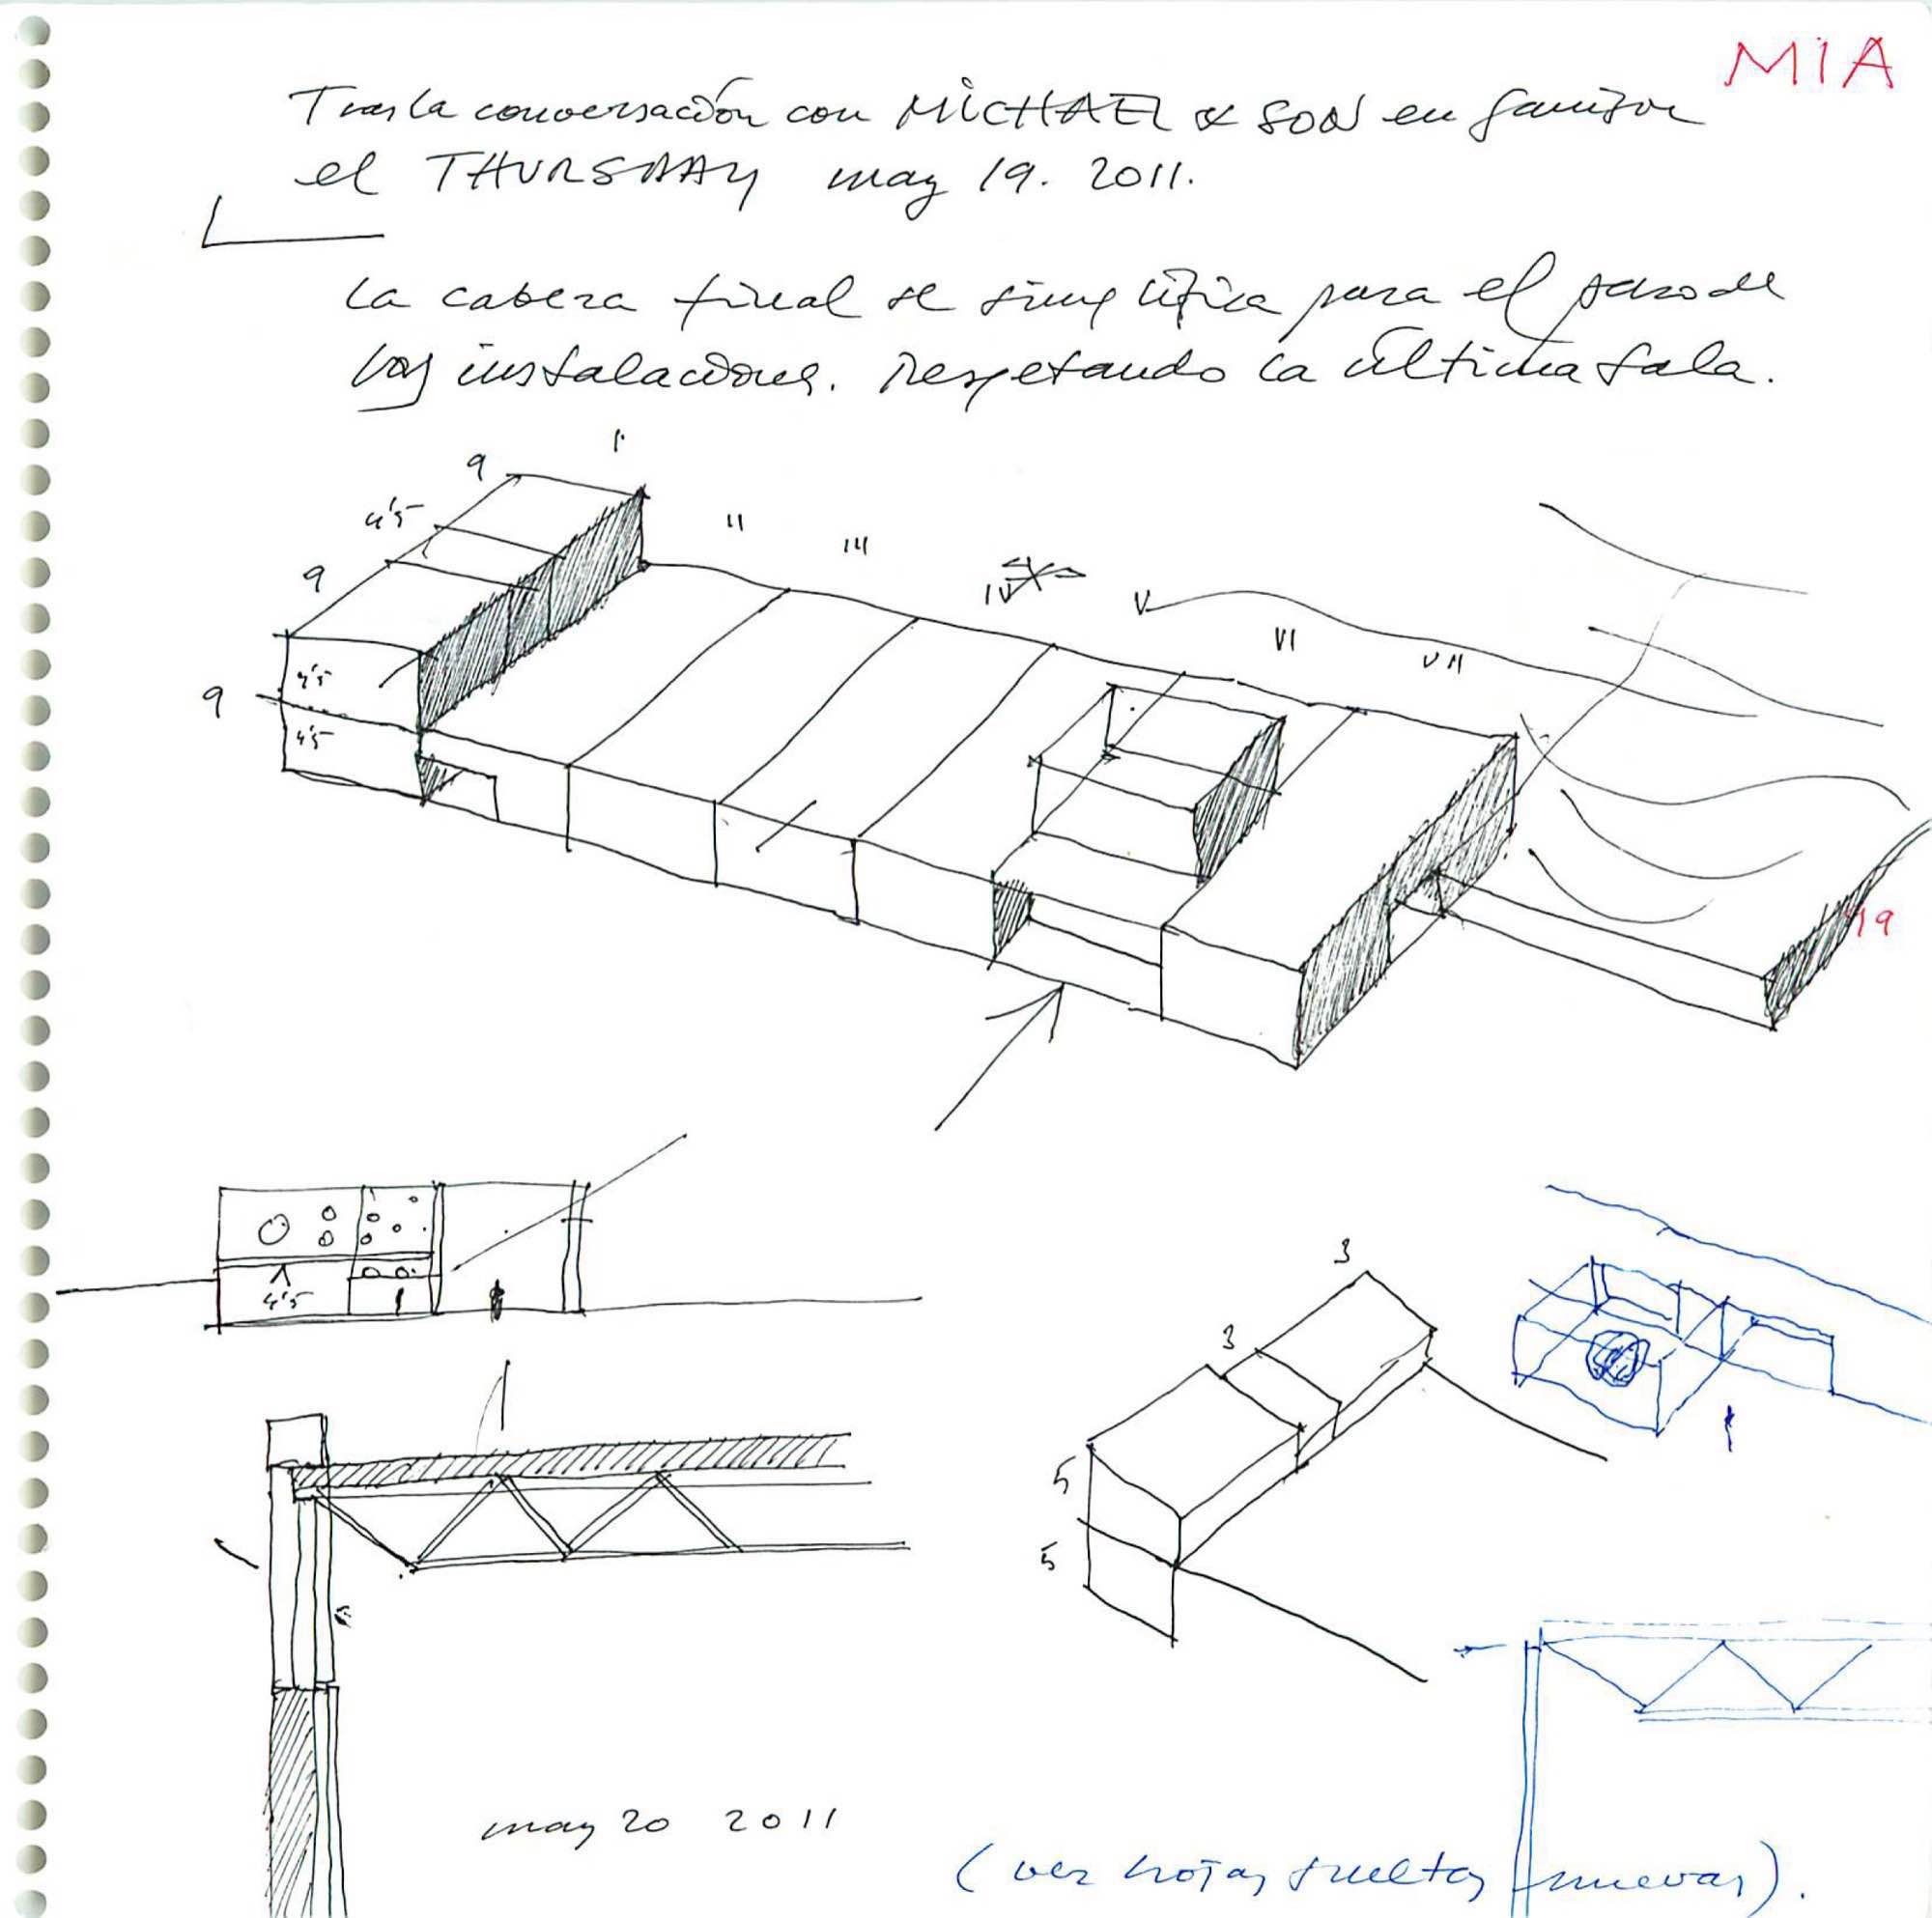 MIA
Tras la conversación con MICHAEL & SON en Garrison
el THURSDAY may 19. 2011.
La cabeza final se simplifica para el paso de
las instalaciones. Respetando la última sala.
I
9
II
4'5
III
9
IV
V
VI
VII
4'5
9
4'5
19
4'5
3
3
5
5
may 20 2011
(ver hojas sueltas nuevas).